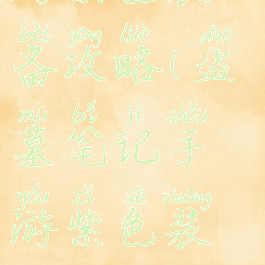 bèi gōng lüè dào
备攻略(盗
mù bǐ jì shǒu
墓笔记手
yóu zǐ sè zhuāng
游紫色装